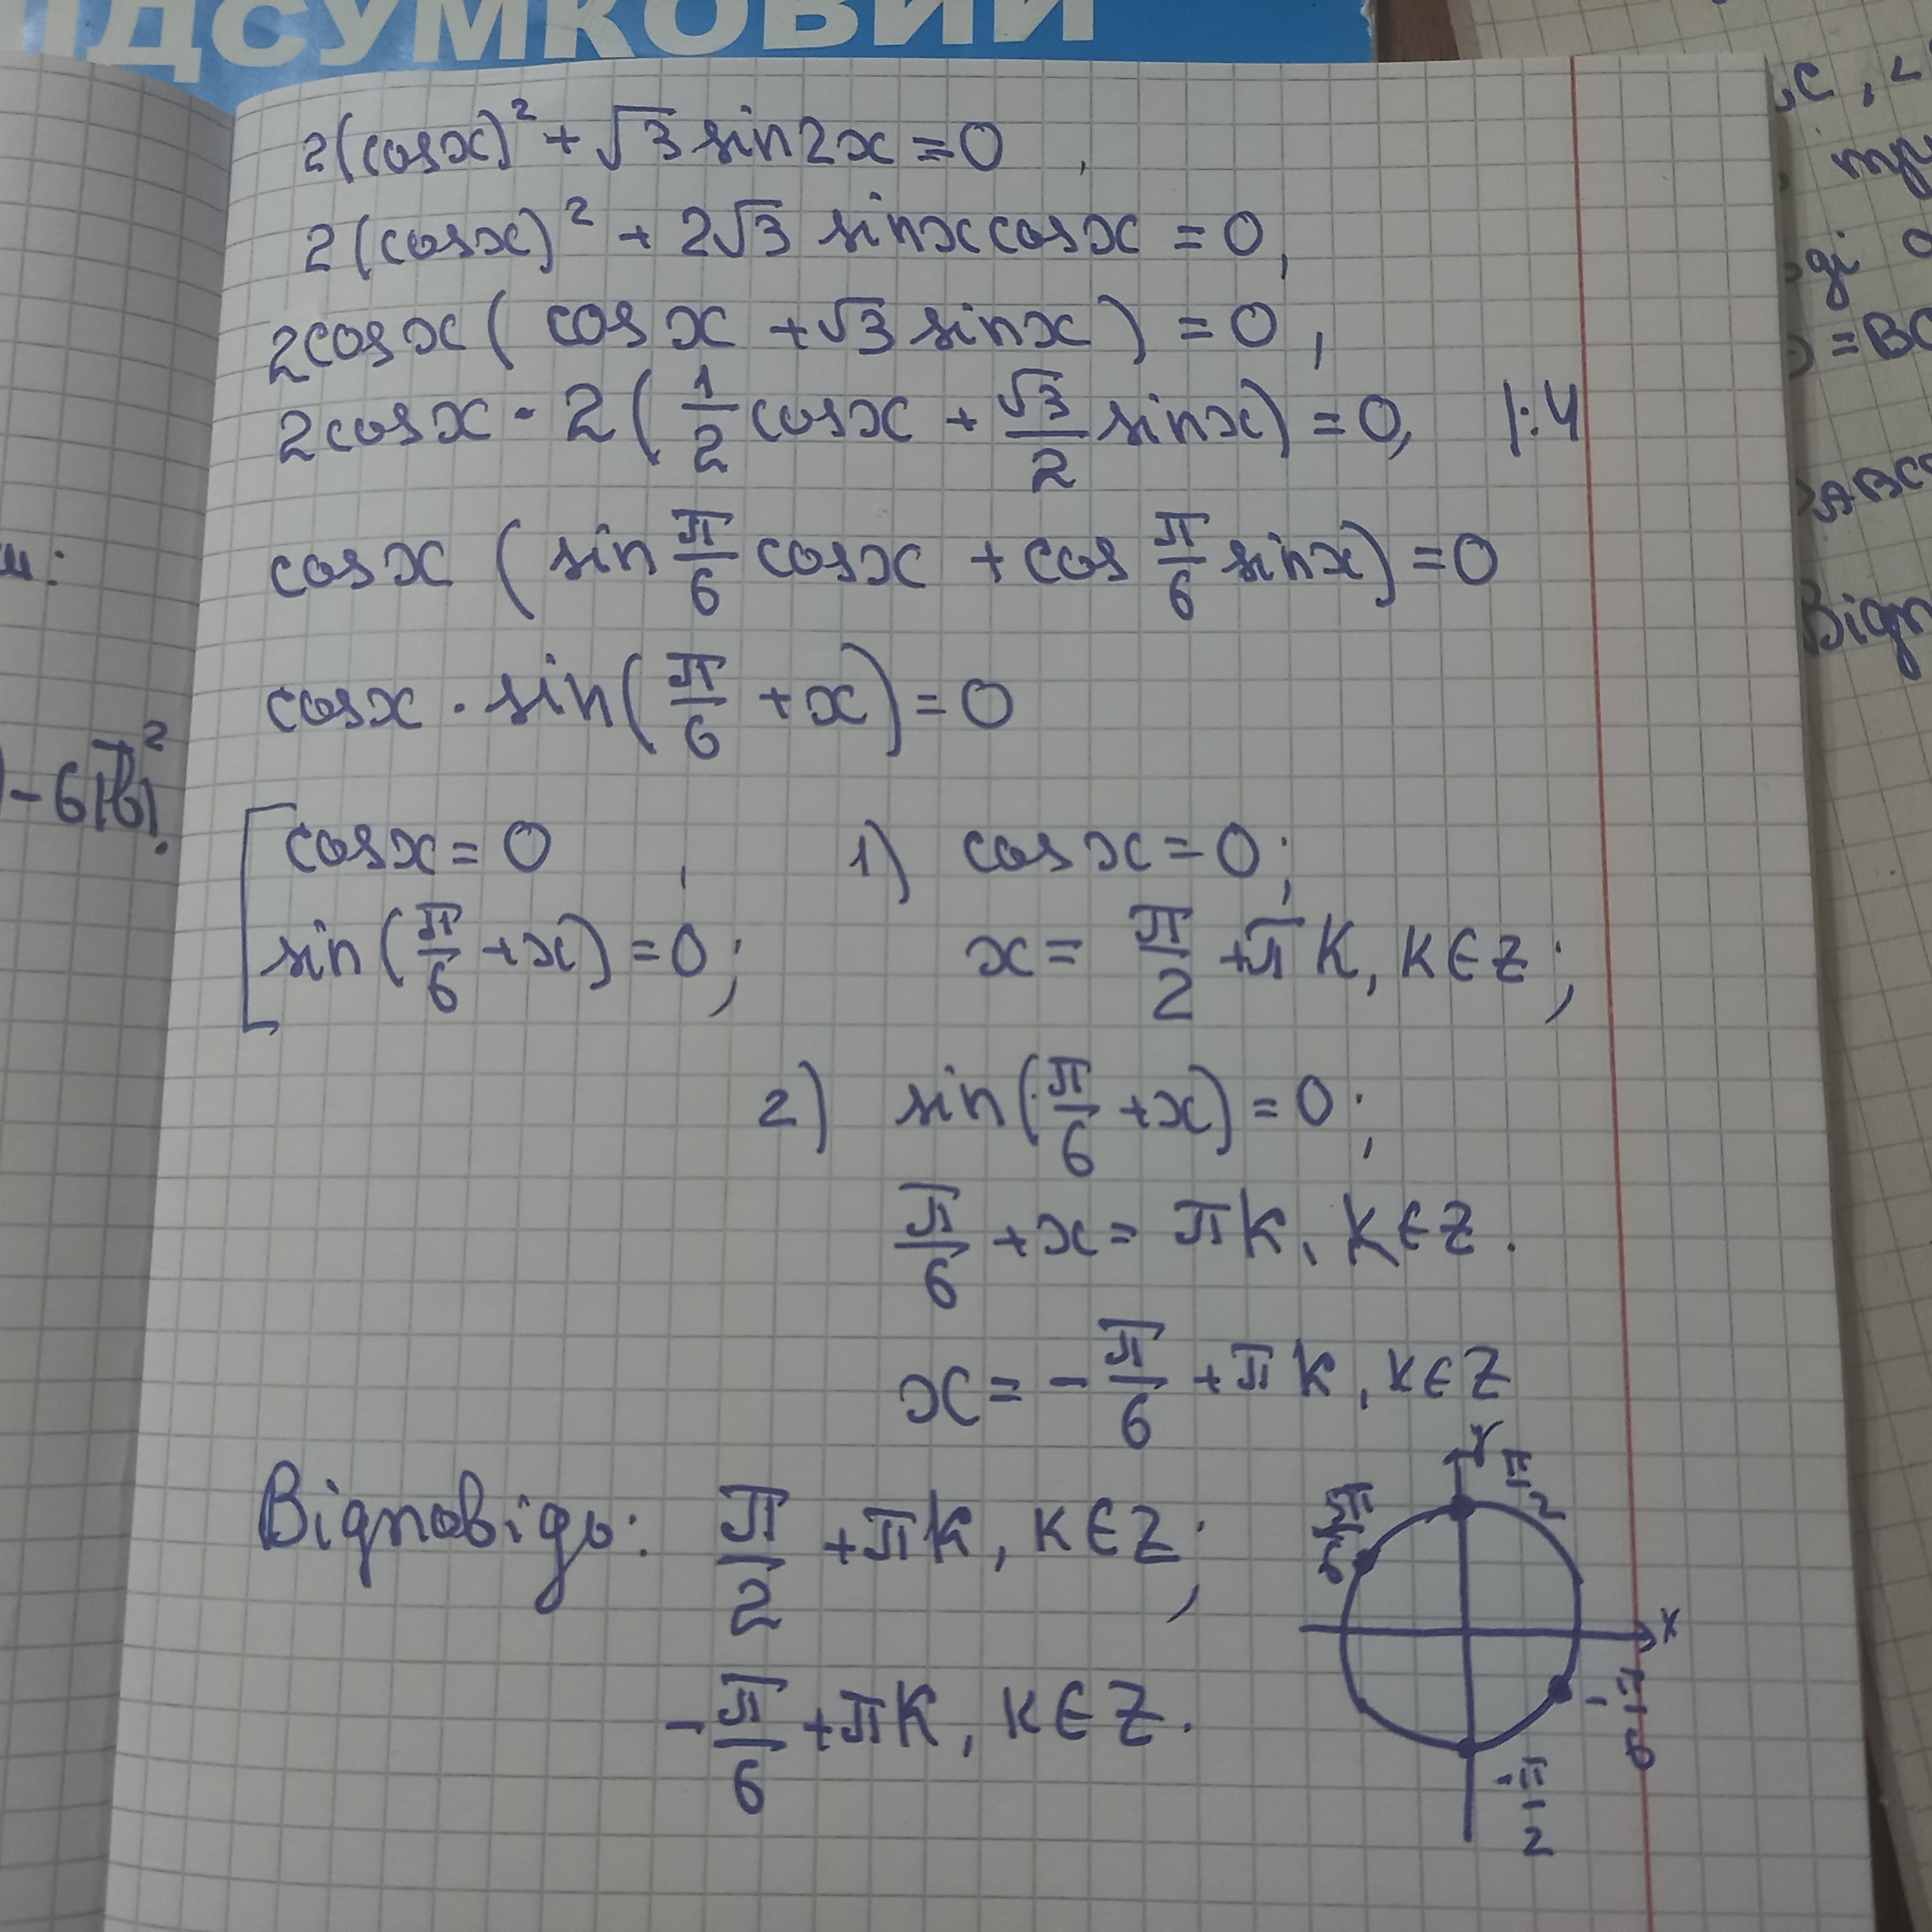 ІДСУМКОВИЙ
2(cosx)² + √3 sin2x = 0 ,
2(cosx)² + 2√3 sinxcosx = 0,
2cosx( cosx + √3 sinx ) = 0 ,
2cosx · 2( 1/2 cosx + √3/2 sinx) = 0, |:4
cosx ( sin π/6 cosx + cos π/6 sinx) = 0
cosx · sin( π/6 + x) = 0
[ cosx = 0 ,
sin( π/6 + x) = 0;
1) cosx = 0;
x = π/2 + πk, k∈Z;
2) sin( π/6 + x) = 0;
π/6 + x = πk, k∈Z.
x = - π/6 + πk, k∈Z
Відповідь: π/2 + πk, k∈Z;
- π/6 + πk, k∈Z.
Y
π/2
5π/6
X
- π/6
- π/2
и:
) - 6|b⃗|²
, C , 2
ді
= BC
ABC